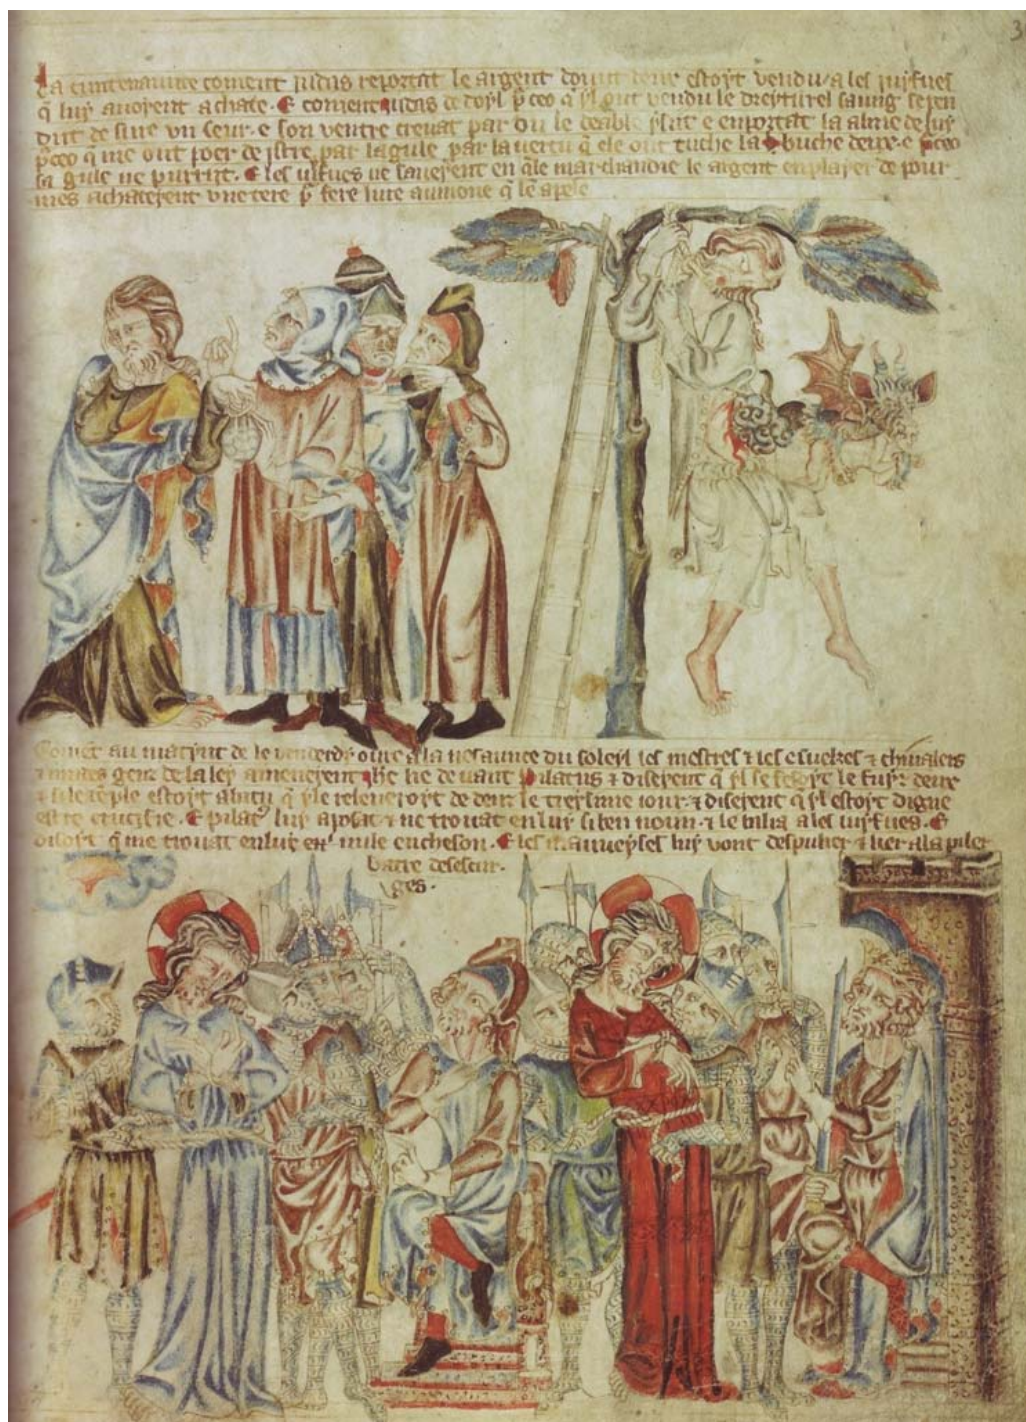 3
La cuntenaunce coment judas reportat le argent dount deux estoyt vendu a les juyfues
q̃ luy avoyent achate. E coment judas de doyl p̃ ceo q̃ yl out vendu le dreyturel saung se pen
dut de sure un seur. e son ventre crevat par ou le deable ysut e enportat la alme de luy
p̃ ceo q̃ ne out poer de istre par la gule par la vertu q̃ ele out tuche la buche deux. e p̃ ceo
sa gule ne purrit. E les juyfues ne saverent en q̃le marchandie le argent enplayer de pour
ches achaterent une tere p̃ fere lure aumone q̃ le apele
Comēt au matynt de le venderdy oure a la nesaunce du soleyl les mestres ⁊ les esveskes ⁊ chivalers
⁊ mutes genz de la ley amenerent Jhc lie devaunt pilatus ⁊ diserent q̃ yl se fesoyt le fuyz deux
⁊ si le temple estoyt abatu q̃ yl le releveroyt dedenz le treysime jour. ⁊ diserent q̃ yl estoyt digne
estre crucifie. E pilat luy aposat ⁊ ne trovat en luy si ben noun. ⁊ le bilia a les juyfues. E
disoyt q̃ ne trovat en luy nule encheson. E les mauveyses luy vont despulier ⁊ lier a la piler
batre de sescur
ges.